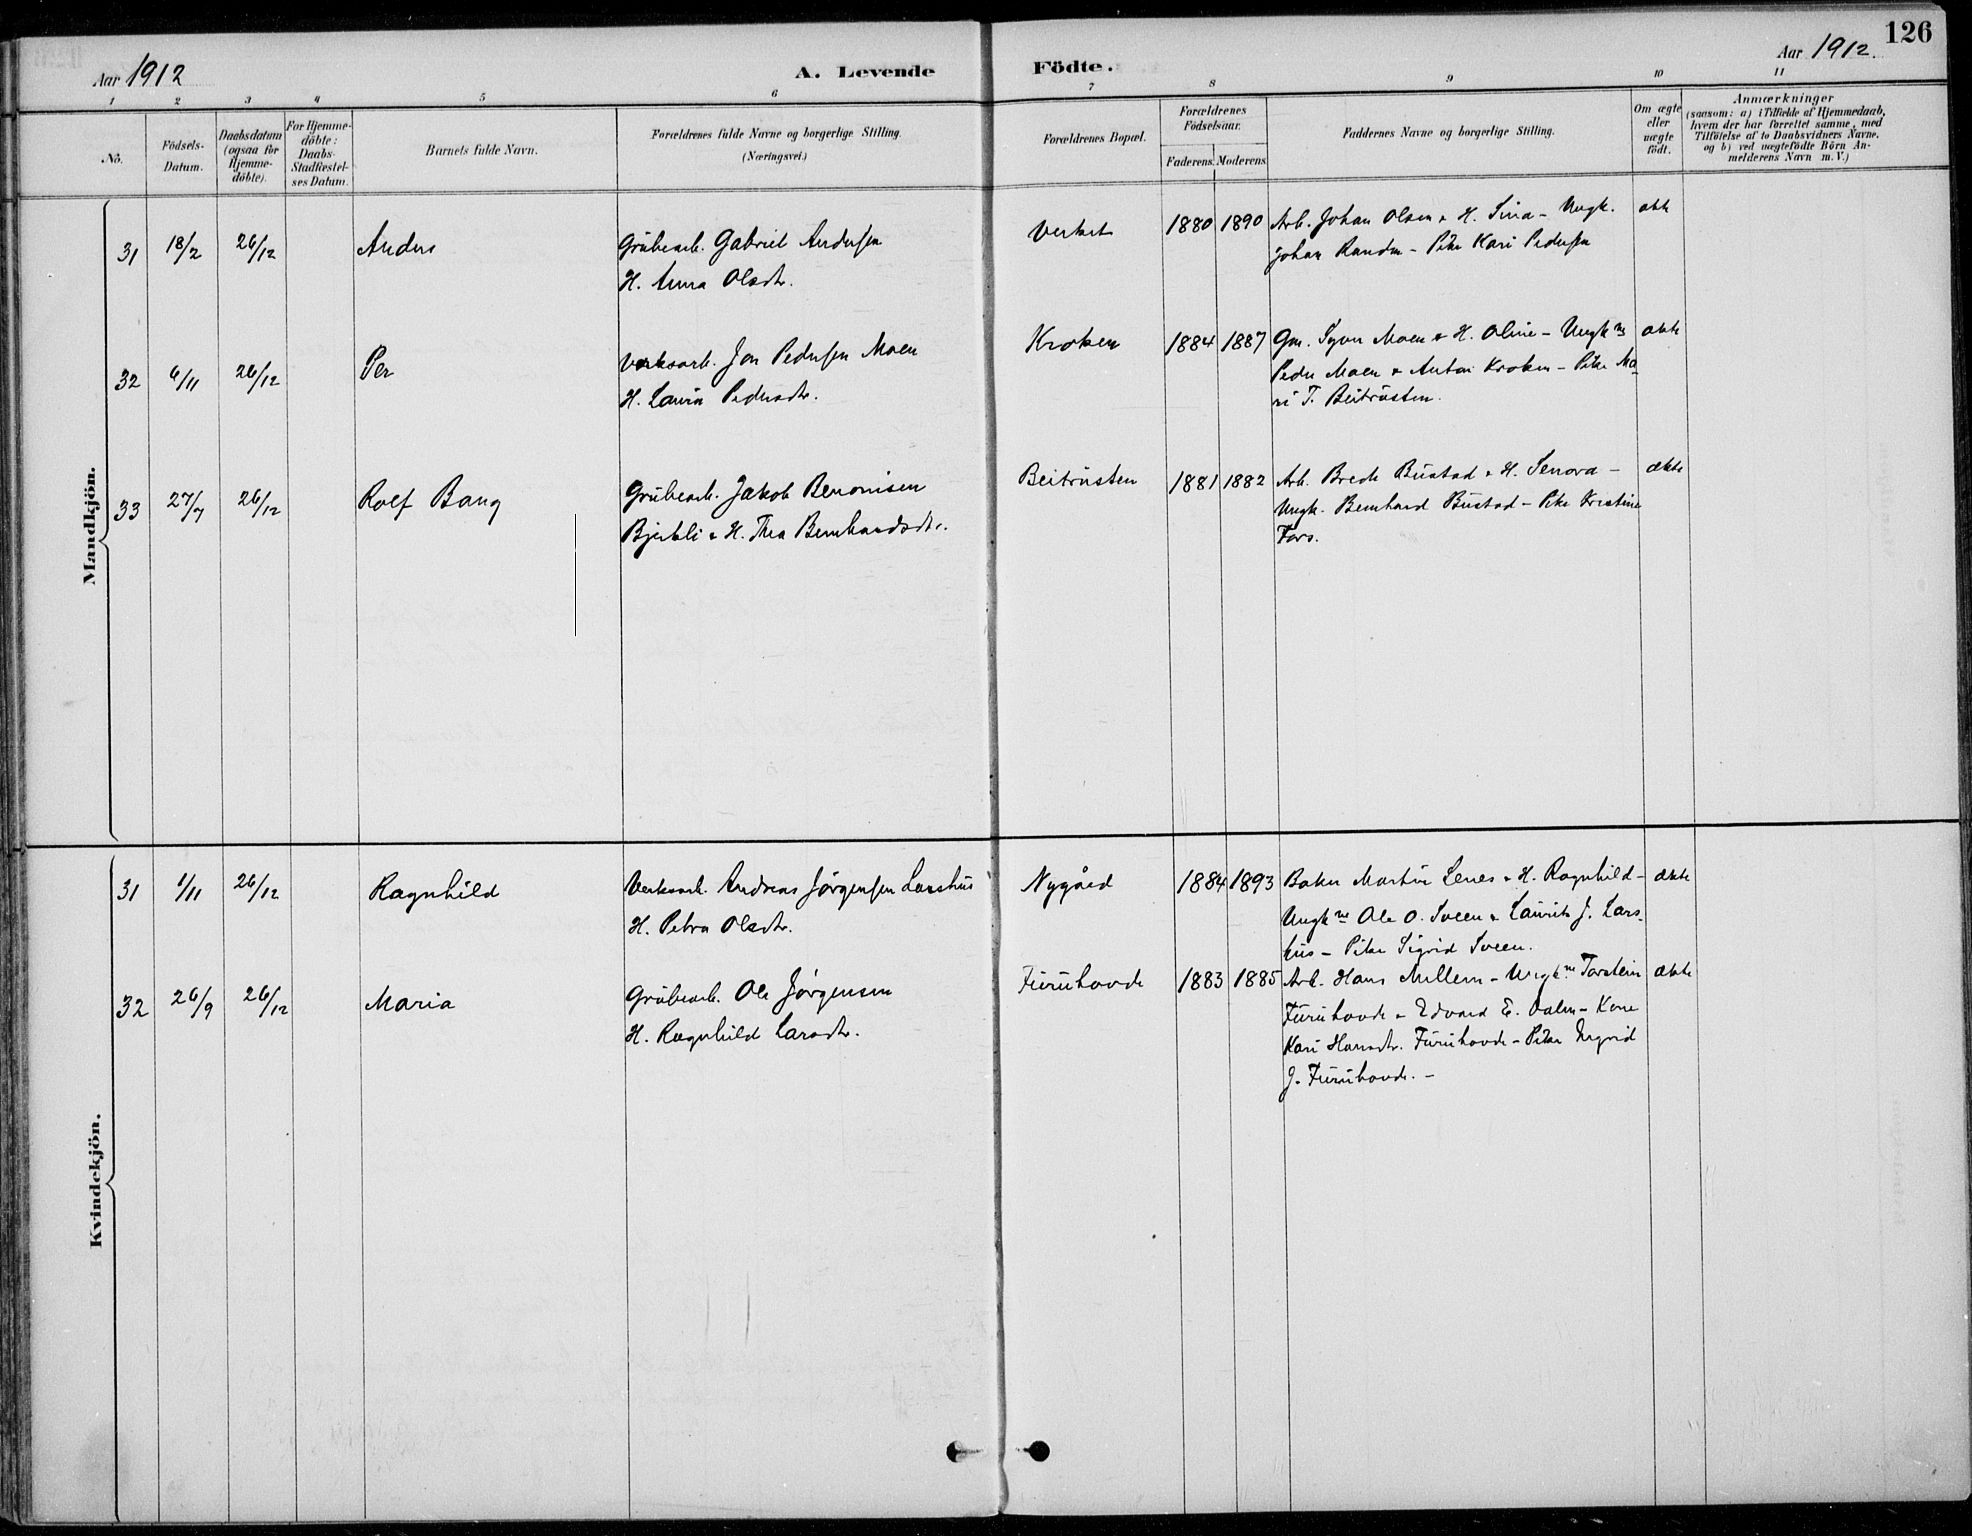 126
Aar 1912
A. Levende Födte.
Aar 1912.
1 2 3 4 5 6 7 8 9 10 11
No.
Födsels-
Datum.
Daabsdatum
(ogsaa for
Hjemme-
döbte).
For Hjemme-
döbte:
Daabs-
Stadfæstel-
ses Datum.
Barnets fulde Navn.
Forældrenes fulde Navne og borgerlige Stilling.
(Næringsvei.)
Forældrenes Bopæl.
Forældrenes
Födselsaar.
Faderens. Moderens.
Faddernes Navne og borgerlige Stilling.
Om ægte
eller
uægte
født.
Anmærkninger
(saasom: a) i Tilfælde af Hjemmedaab,
hvem der har forrettet samme, med
Tilföielse af to Daabsvidners Navne.
og b) ved uægtefödte Börn An-
melderens Navn m. V.)
Mandkjön.
31 18/2 26/12 Anders
Grubearb. Gabriel Andersen
H. Anna Olsdtr.
Verket 1880 1890
Arb. Johan Olsen & H. Sina - Ungk.
Johan Randen - Pike Kari Pedersen
ekte
32 6/11 26/12 Per
Verksarb. Jon Pedersen Moen
H. Laura Pedersdtr.
Kroken 1884 1887
Gm. Syver Moen & H. Oline - Ungkne
Peder Moen & Anton Kroken - Pike Ma-
ri T. Beitrusten.
ekte
33 27/7 26/12 Rolf Bang
Grubearb. Jakob Benonisen
Bjerkli & H. Thea Bernhardsdtr.
Beitrusten 1881 1882
Arb. Brede Bustad & H. Senova -
Ungk. Bernhard Bustad - Pike Kristine
Fors.
ekte
Kvindekjön.
31 1/11 26/12 Ragnhild
Verksarb. Andreas Jørgensen Larshus
H. Petra Olsdtr.
Nygård 1884 1893
Baker Martin Lenes & H. Ragnhild -
Ungkne Ole O. Sveen & Laurits J. Lars-
hus - Pike Sigrid Sveen.
ekte
32 26/9 26/12 Maria
Grubearb. Ole Jørgensen
H. Ragnhild Larsdtr.
Furuhovde 1883 1885
Arb. Hans Mellem - Ungkne Torstein
Furuhovde & Edvard E. Dalen - Kone
Kari Hansdtr. Furuhovde - Pike Ingrid
J. Furuhovde. -
ekte